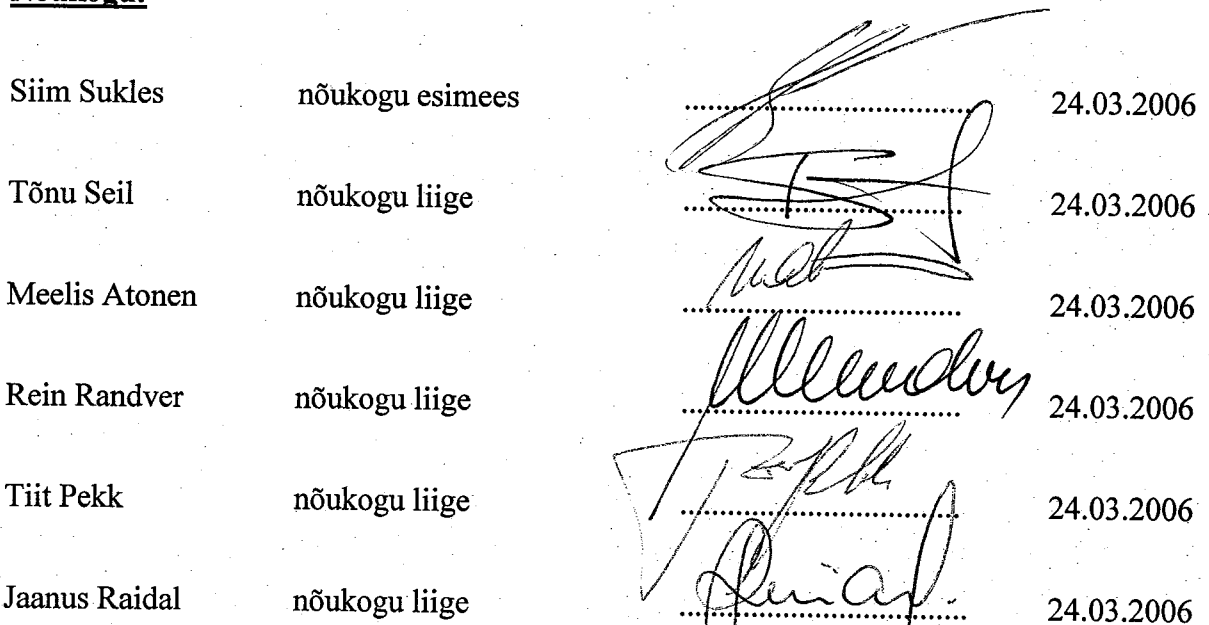 Nõukogu:
Siim Sukles nõukogu esimees ........................................ 24.03.2006
Tõnu Seil nõukogu liige ........................................ 24.03.2006
Meelis Atonen nõukogu liige ........................................ 24.03.2006
Rein Randver nõukogu liige ........................................ 24.03.2006
Tiit Pekk nõukogu liige ........................................ 24.03.2006
Jaanus Raidal nõukogu liige ........................................ 24.03.2006